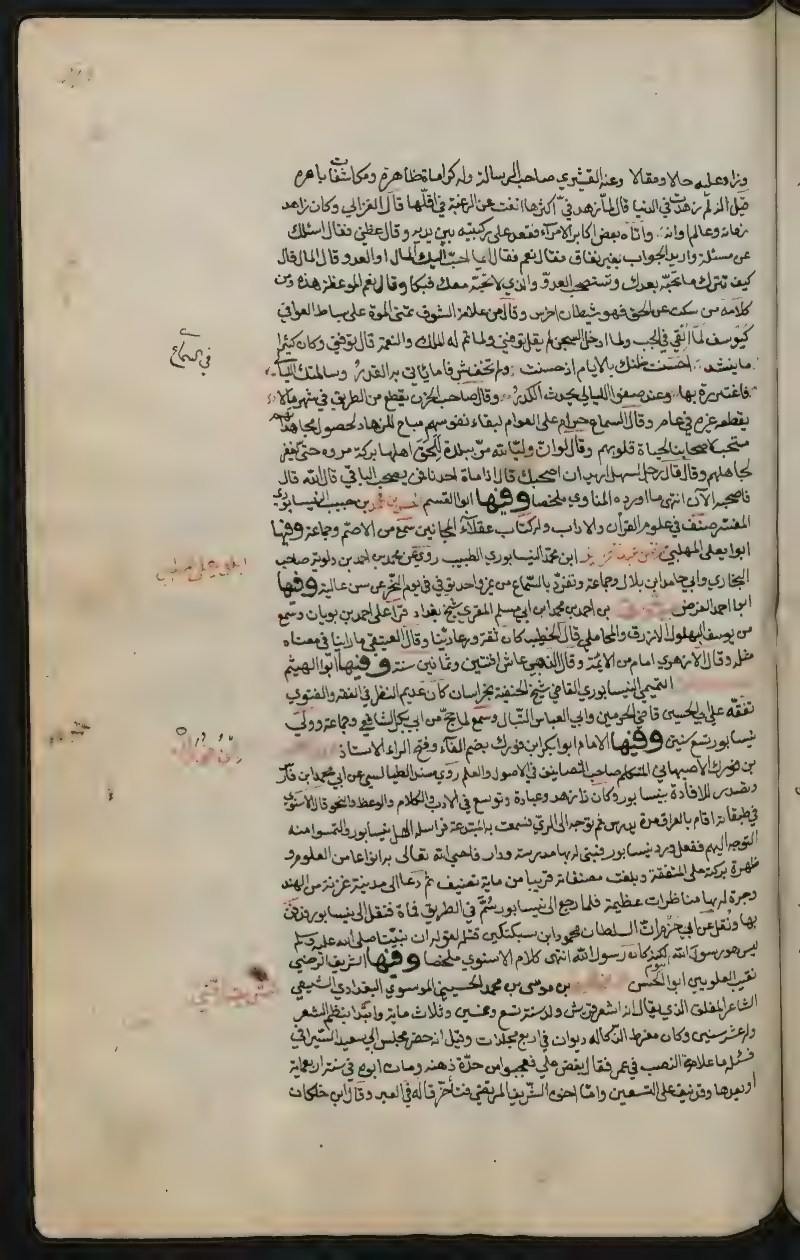 وزاد عليه حالا ومقالا وعنه القشيري صاحب الرسالة وله كرامات ظاهرة ومكاشفات باهرة
قيل له لم زهدت في الدنيا قال لما زهد في أكثرها أنفت عن الرغبة في أقلها قال الغزالي وكان زاهد
زمانه وعالم أوانه وأتاه بعض أكابر الأمراء فقعد على ركبتيه بين يديه وقال عظني فقال أسئلك
عن مسئلة وأريد الجواب بغير نفاق فقال نعم فقال أيما أحب إليك المال أو العدو قال المال قال
كيف تترك ما تحبه بعدك وتستصحب العدو الذي لا تحبه معك فبكا وقال نعم الموعظة هذه ومن
كلامه من سكت عن الحق فهو شيطان أخرس وقال من علامة الشوق تمني الموت على بساط العوافي
كيوسف لما ألقي في الجب ولما أدخل السجن لم يقل توفني ولما تم له الملك والنعمة قال توفني وكان كثيرا
ما ينشد أحسنت ظنك بالأيام إذ حسنت ولم تخف شر ما يأتي به القدر وسالمتك الليالي
فاغتررت بها وعند صفو الليالي يحدث الكدر وقال صاحب الحزن يقطع من الطريق في شهر ما لا
يقطعه غيره في عام وقال السماع حرام على العوام لبقاء نفوسهم مباح للزهاد لحصول مجاهداتهم
مستحب لأصحابنا لحياة قلوبهم وقال لو أن وليا لله مر ببلدة للحق أهلها بركة مروره حتى يغفر
لجاهلهم وقال قال رجل لسهل أريد أن أصحبك قال إذا مات أحدنا فمن يصحب الباقي قال الله قال
فاصحبه الآن انتهى ما أورده المناوي ملخصا وفيها أبو القسم بن حبيب النيسابوري
المفسر صنف في علوم القرآن والآداب وله كتاب عقلاء المجانين سمع من الأصم وجماعة وفيها
أبو يعلى المهلبي ابن محمد النيسابوري الطبيب روى عن محمد بن أحمد بن دلويه صاحب
البخاري وأبي حامد ابن بلال وجماعة وتفرد بالسماع من غير واحد توفي في يوم النحر عن سن عالية وفيها
أبو أحمد الفرضي بن أحمد بن محمد ابن أبي مسلم المقري شيخ بغداد قرأ على أحمد بن بويان وسمع
من يوسف البهلول الأزرق والمحاملي قال الخطيب كان ثقة ورعا دينا وقال العتيقي ما رأينا في معناه
مثله وقال الأزهري إمام من الأئمة وقال الذهبي عاش اثنتين وثمانين سنة وفيها أبو الهيثم
التميمي النيسابوري القاضي شيخ الحنفية بخراسان كان عديم النظير في الفقه والفتوى
تفقه على أبي الحسين قاضي الحرمين وأبي العباس التبان وسمع لما حج من أبي بكر الشافعي وجماعة وولي
نيسابور تسع سنين وفيها الإمام أبو بكر ابن فورك بضم الفاء وفتح الراء الأستاذ
بن فورك الأصبهاني المتكلم صاحب التصانيف في الأصول والعلم روى مسند الطيالسي عن أبي محمد ابن فارس
وتصدر للإفادة بنيسابور وكان ذا زهد وعبادة وتوسع في الأدب والكلام والوعظ والنحو قال الأسنوي
في طبقاته أقام بالعراق مدة يدرس ثم توجه إلى الري فسمعت به المبتدعة فراسله أهل نيسابور والتمسوا منه
التوجه إليهم ففعل وورد نيسابور فبني له بها مدرسة ودار فأحيى الله تعالى به أنواعا من العلوم و
ظهرت بركته على المتفقهة وبلغت مصنفاته قريبا من ماية تصنيف ثم دعا إلى مدينة غزنة من الهند
وجرت له بها مناظرات عظيمة فلما رجع إلى نيسابور سم في الطريق فمات فنقل إلى نيسابور فدفن
بها ونقل عن ابن حزم أن السلطان محمود ابن سبكتكين قتله لقوله إن نبينا صلى الله عليه وسلم
ليس هو رسول الله اليوم لكنه كان رسول الله انتهى كلام الأسنوي ملخصا وفيها الشريف الرضي
نقيب العلويين أبو الحسن بن موسى بن محمد الحسيني الموسوي البغدادي الشيعي
الشاعر المفلق الذي يقال إنه أشعر قريش ولد سنة تسع وخمسين وثلاث ماية وابتدأ بنظم الشعر
وله عشر سنين وكان مفرط الذكا له ديوان في أربع مجلدات وقيل إنه حضر مجلس أبي سعيد السيرافي
فسئل ما علامة النصب في عمر فقال بغض علي فعجبوا من حدة ذهنه ومات أبوه في سنة أربعماية
أو بعدها وقد نيف على التسعين وأما أخوه الشريف المرتضى فتأخر قاله في العبر وقال ابن خلكان
في السماع